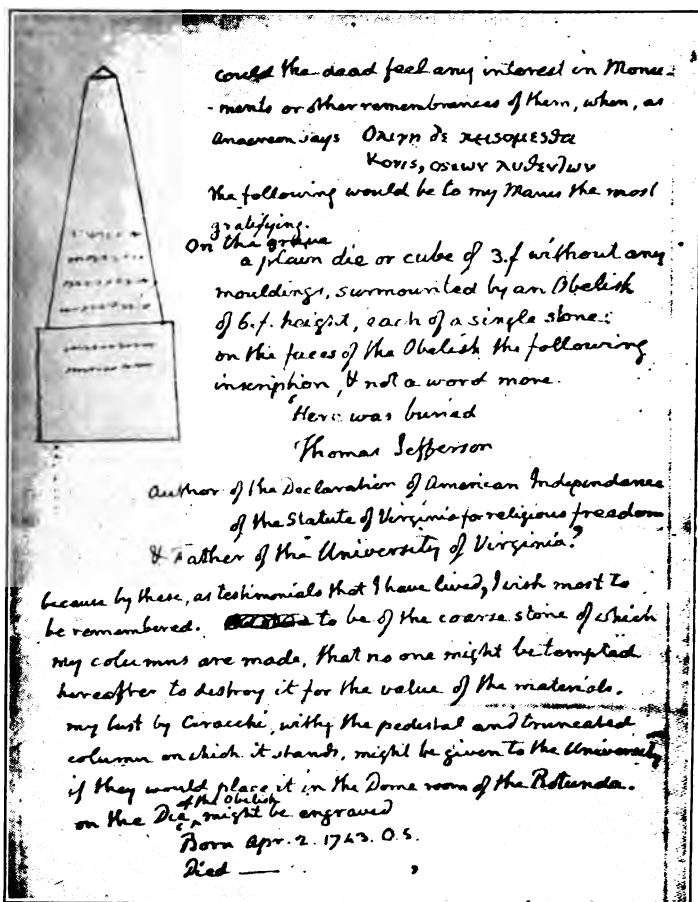 could the dead feel any interest in Monu-
-ments or other remembrances of them, when, as
Anacreon says Ολιγη δε κεισομεσθα
Κονις, οστεων λυθεντων
the following would be to my Manes the most
gratifying.
On the grave
a plain die or cube of 3.f without any
mouldings, surmounted by an Obelisk
of 6.f. height, each of a single stone:
on the faces of the Obelisk the following
inscription, & not a word more.
"Here was buried
Thomas Jefferson
author of the Declaration of American Independance
of the Statute of Virginia for religious freedom
& Father of the University of Virginia."
because by these, as testimonials that I have lived, I wish most to
be remembered. to be of the coarse stone of which
my columns are made, that no one might be tempted
hereafter to destroy it for the value of the materials.
my bust by Ciracchi, with the pedestal and truncated
column on which it stands, might be given to the University
if they would place it in the Dome room of the Rotunda.
on the Die of the Obelisk might be engraved
Born Apr. 2. 1743. O.S.
Died —